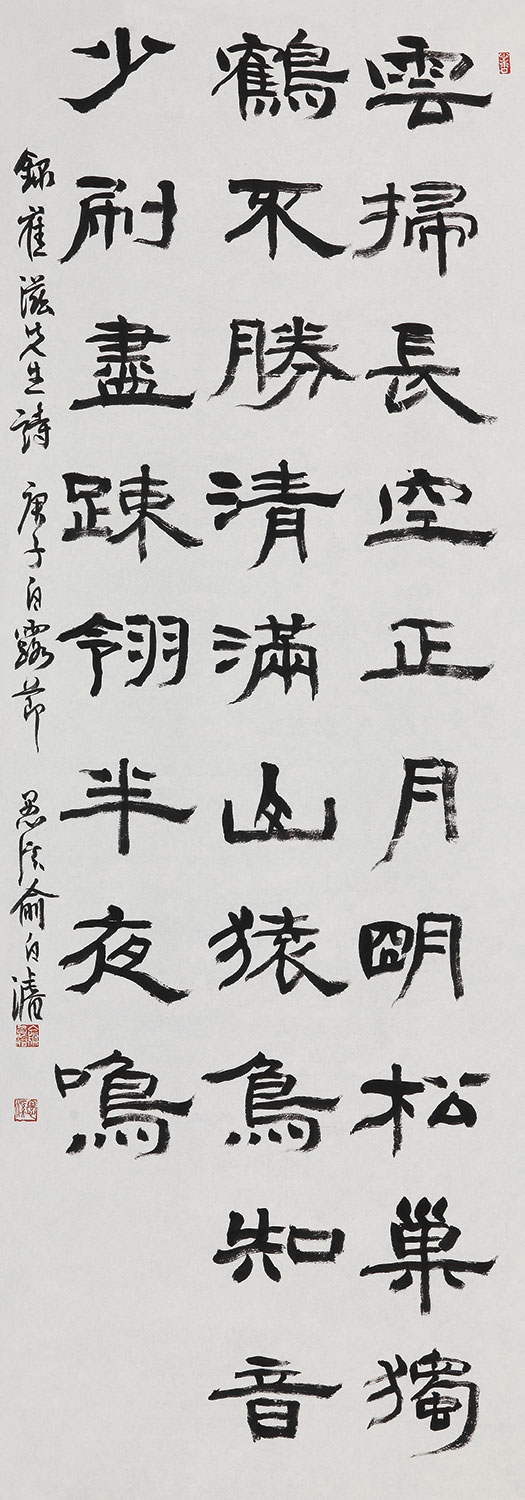 雲掃長空正月朙松巢獨
鶴不勝清滿山猿鳥知音
少刷盡踈翎半夜鳴
錄崔滋先生詩 庚子白露節 愚溪俞白